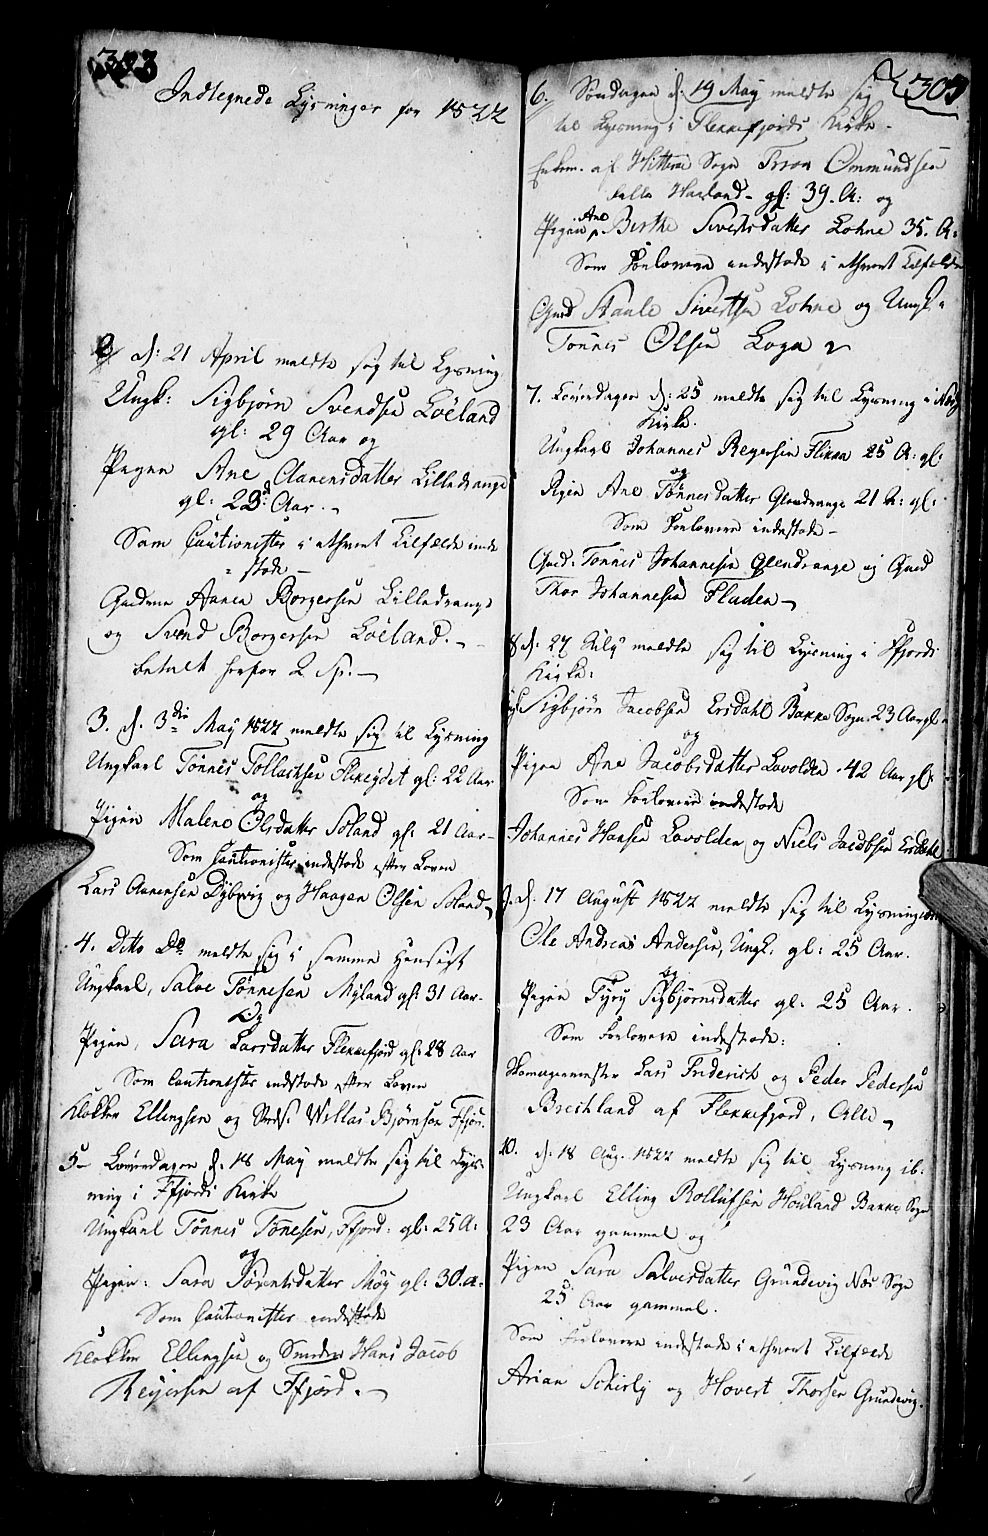 Indtegnede Lysninger for 1822
2 d: 21 April meldte sig til Lysning
Ungk: Sigbjørn Svendsen Loëland
gl: 29 Aar og
Pigen Ane Aanensdatter Lilledrange
gl: 23 Aar.
Som Cautionister i ethvert Tilfælde inde
=stode
Gudene Aanen Borgersen Lilledrange
og Svend Borgersen Loëland.
betalt herfor 2 Sp.
3. d. 3die May 1822 meldte sig til Lysning
Ungkarl Tønnes Tollachsen gl: 22 Aar
og
Pigen Malene Olsdatter Søland gl: 21 Aar
Som Cautionister indestode efter Loven
Lars Aanensen Dybvig og Haagen Olsen Søland
4. Ditto Do meldte sig i samme Hensigt
Ungkarl, Salve Tønnesen Myland gl: 31 Aar
Og
Pigen, Sara Larsdatter Flekkefjord gl: 28 Aar
Som Cautionister indestode efter Loven
Klokker Ellingsen og Willas Bjørnsen Ffjor.
5 Løverdagen d. 18 May meldte sig til Lys-
ning i Ffjords Kirke
Ungkarl Tønnes Tønesen, Ffjord: gl: 25 A:
og
Pigen: Sara Sørentsdatter Møy gl: 30 A:
Som Cautionister indestode
Klokker Ellingsen og Hans Jacob
Reyersen af Ffjord.
305
6. Søndagen d: 19 May meldte sig
til Lysning i Flekkefjords Kirke
Enkem. af Hitterøe Sogn Tron Ommundsen
Hauland gl: 39 A: og
Pigen Ane Berthe Sivertsdatter Lohne 35. A:
Som Forlovere indestode i ethvert Tilfælde
Gmd Staale Sivertsen Lohne og Ungk.
Tønnes Olsen Loga
7. Løverdagen d: 25 meldte sig til Lysning i
Kirke.
Ungkarl Johannes Reyersen Flikka 25 A: gl:
og
Pigen Ane Tønnesdatter Glendrange 21 A: gl:
Som Forlovere indestode
Gmd: Tønnes Johannesen Glendrange og Gmd
Thor Johannesen Fladen
8 d: 27 July meldte sig til Lysning i Ffjords
Kirke:
Sigbjørn Jacobsen Ersdahl Bakke Sogn 23 Aar gl
og
Pigen Ane Jacobsdatter Lavolden 42 Aar gl:
Som Forlovere indestode
Johannes Hansen Lavolden og Niels Jacobsen Ersdahl
9. d. 17 August 1822 meldte sig til Lysning
Ole Andreas Andersen, Ungk. gl: 25 Aar.
og
Pigen Tyry Sigbjørnsdatter gl: 25 Aar.
Som Forlovere indestode:
Lars Friderich og Peder Pedersen
Breihland af Flekkefjord, Alle
10. d: 18 Aug. 1822 meldte sig til Lysning ib:
Ungkarl Elling Rollufsen Houland Bakke Sogn
23 Aar gammel og
Pigen Sara Salvesdatter Grundevig Næs Sogn
25 Aar gammel.
Som Forlovere indestode i ethvert Tilfælde
Arian Schirly og Hovert Thorsen Grundevig.